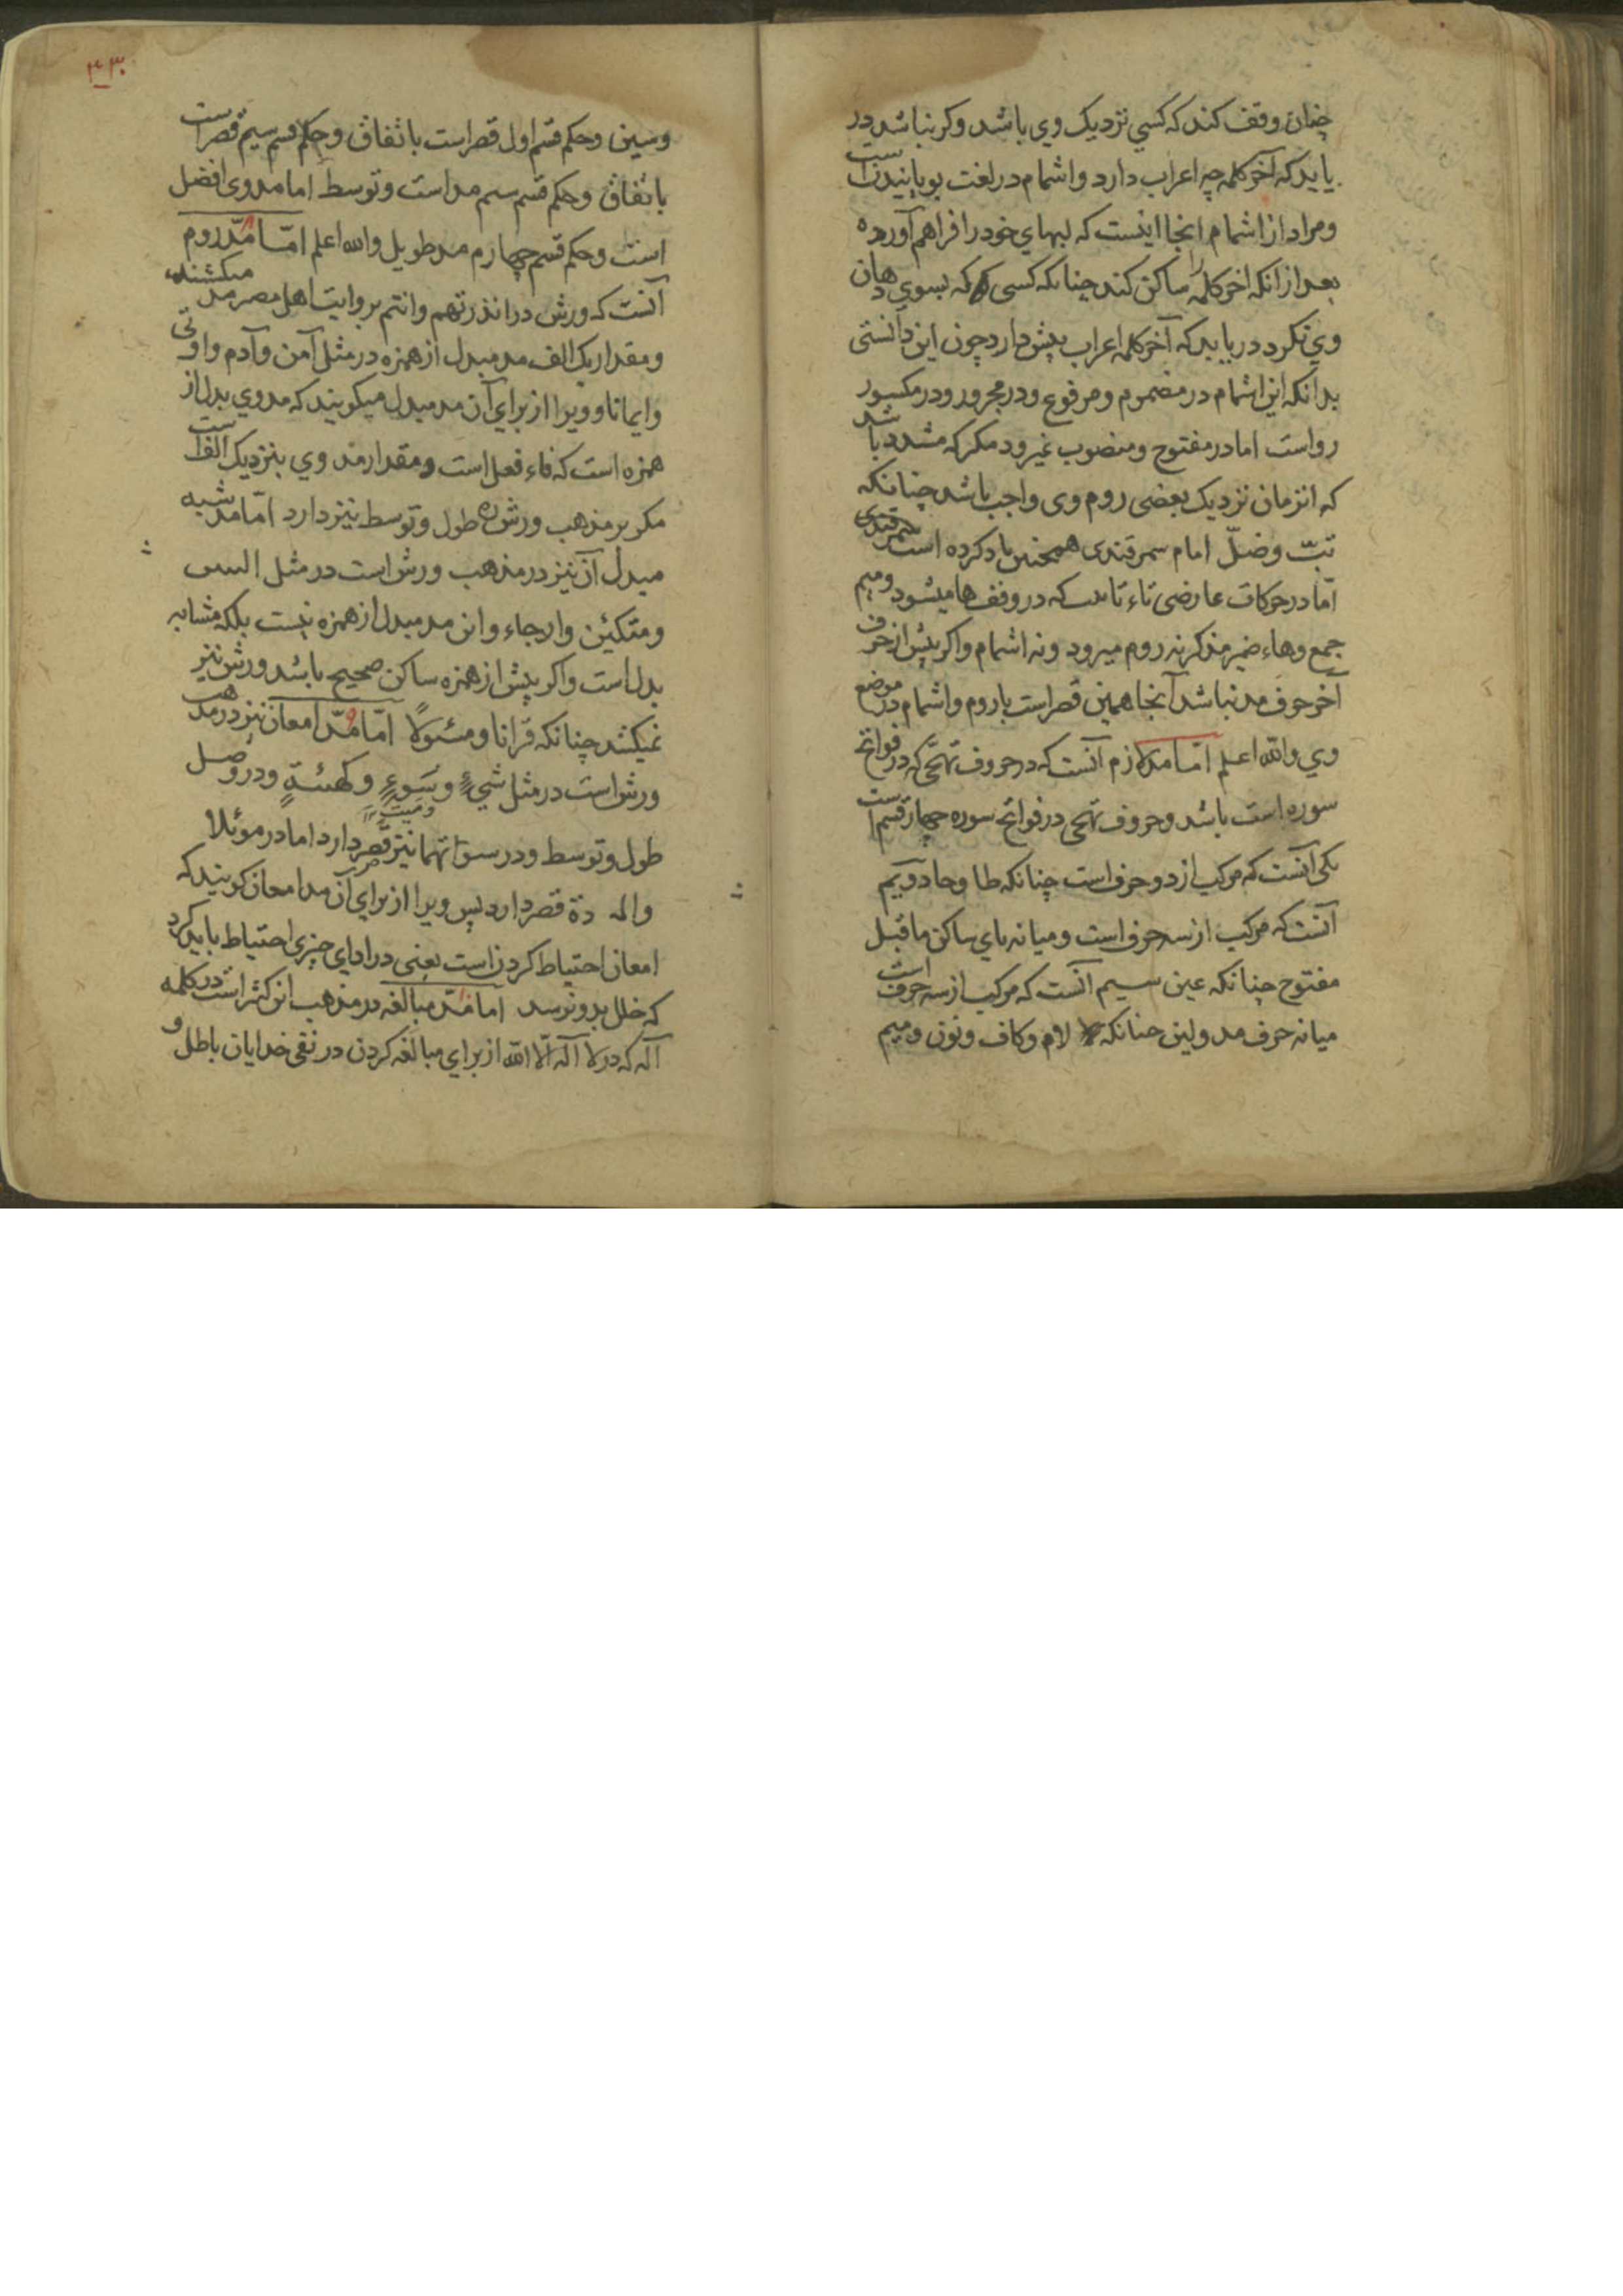 چنان وقف کند که کسي نزدیک وي باشد وکر نباشد در
یابد که آخر کلمه چه اعراب دارد واشمام در لغت بویانیدن است
ومراد از اشمام اینجا اینست که لبهاي خود را فراهم آورده
بعد از انکه اخر کلمه را ساکن کند چنانکه کسی که بسوي دهان
وي نکرد دریابد که آخر کلمه اعراب پیش دارد چون این دانستی
بدانکه این اشمام در مضموم ومرفوع ودر مجرور ودر مکسور
رواست اما در مفتوح ومنصوب نمیرود مکر که مشدد باشد
که انزمان نزدیک بعضی روم وی واجب باشد چنانکه
تبّ وضلّ امام سمرقندی همچنین یاد کرده است
امّا در حرکات عارضی تاء تانیث که در وقف ها میشود ومیم
جمع وهاء ضمیر مذکر نه روم میرود ونه اشمام واکر پیش از حرف
آخر حرف مد نباشد آنجا همین قصر است با روم واشمام در موضع
وي والله اعلم امّا مد لازم آنست که در حروف تهجّی که در فواتح
سوره است باشد وحروف تهجی در فواتح سوره چهار قسم است
یکی آنست که مرکب از دو حرف است چنانکه طا وحا دویم
آنست که مرکب از سه حرف است ومیانه یاي ساکن ماقبل
مفتوح چنانکه عین سیم آنست که مرکب از سه حرف است
میانه حرف مد ولین چنانکه لام وکاف ونون ومیم
۴۳۰
وسین وحکم قسم اول قصر است باتفاق وحکم قسم سیم قصر است
باتفاق وحکم قسم سیم مد است وتوسط اما مد وی افضل
است وحکم قسم چهارم مد طویل والله اعلم امّا مدّ روم
آنست که ورش در انذرتهم وانتم بروایت اهل مصر مد میکشند
ومقدار یک الف مد مبدل از همزه در مثل آمن وآدم واوتی
وایمانا وویرا از برای آن مد مبدل میکویند که مد وي بدل از
همزه است که فاء فعل است ومقدار مد وي بنزدیک الف است
مکر بر مذهب ورش که طول وتوسط نیز دارد امّا مد شبه
مبدل آن نیز در مذهب ورش است در مثل
ومتکئین وان مد مبدل از همزه نیست بلکه مشابه
بدل است واکر پیش از همزه ساکن صحیح باشد ورش نیز
نمیکشد چنانکه قرانا ومسئولاً امّا مدّ امعان نیز در مذهب
ورش است در مثل شيءٍ وسوءٍ وکهیئةٍ ودر وصل
طول وتوسط ودر سوآتهما نیز قصر دارد اما در موئلا
قصر دارد پس ویرا از برای آن مد امعان کویند که
امعان احتیاط کردن است یعنی در ادای چیزی احتیاط باید کرد
که خلل بدو نرسد اما مدّ مبالغه در مذهب ابن کثیر است در کلمه
آله که در لا اله الّا الله از برای مبالغه کردن در نفی خدایان باطل و